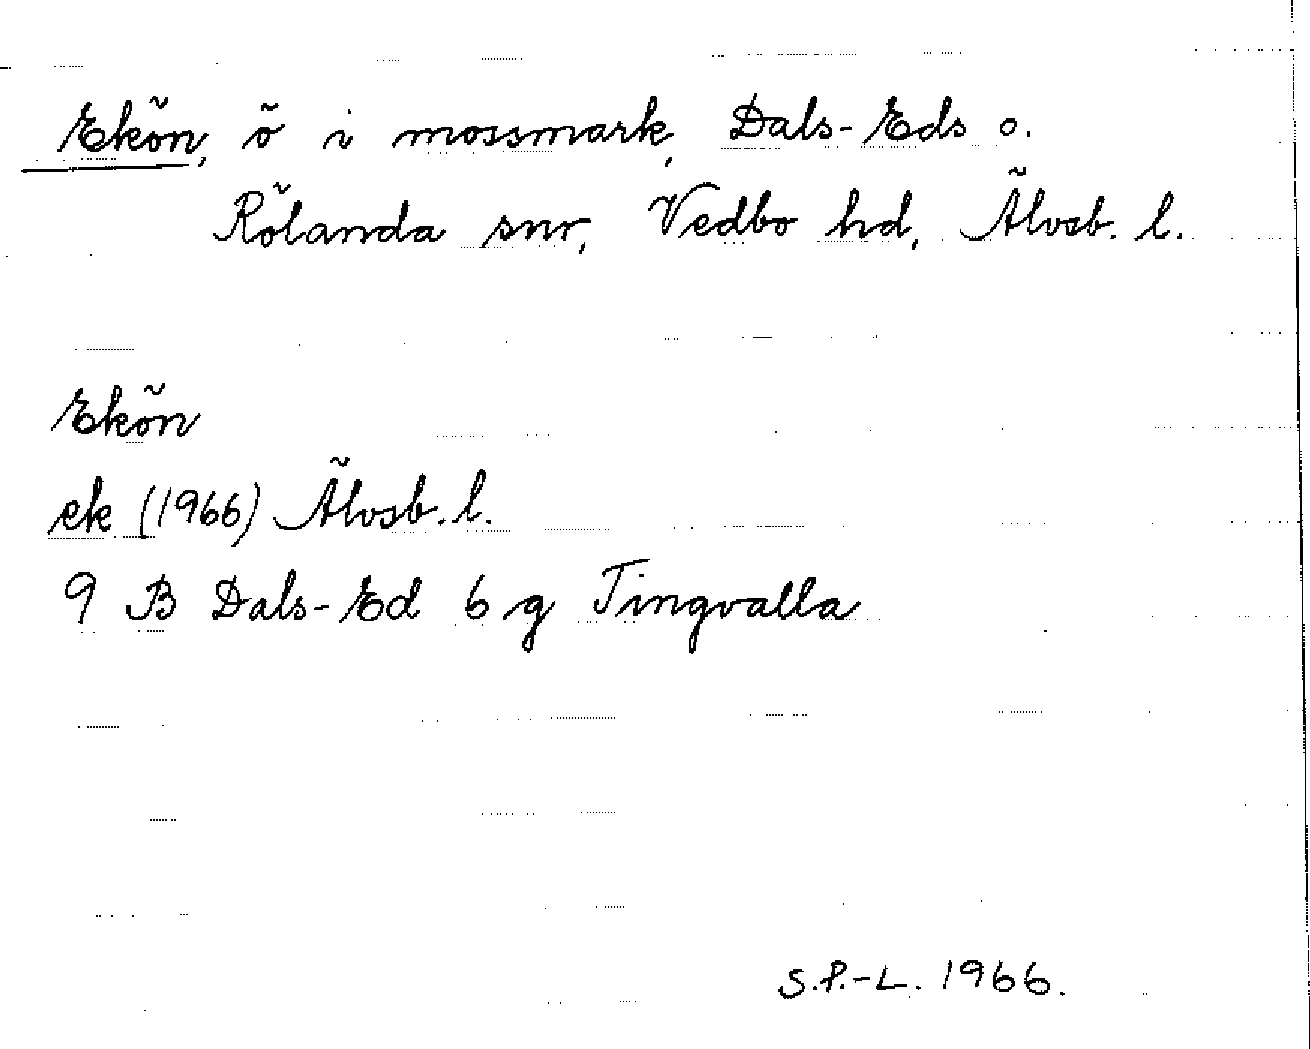 Ekön, ö i mossmark, Dals-Eds o.
Rölanda snr, Vedbo hd, Älvsb. l.
Ekön
ek (1966) Älvsb. l.
9 B Dals-Ed 6 g Tingvalla
S.P.-L. 1966.